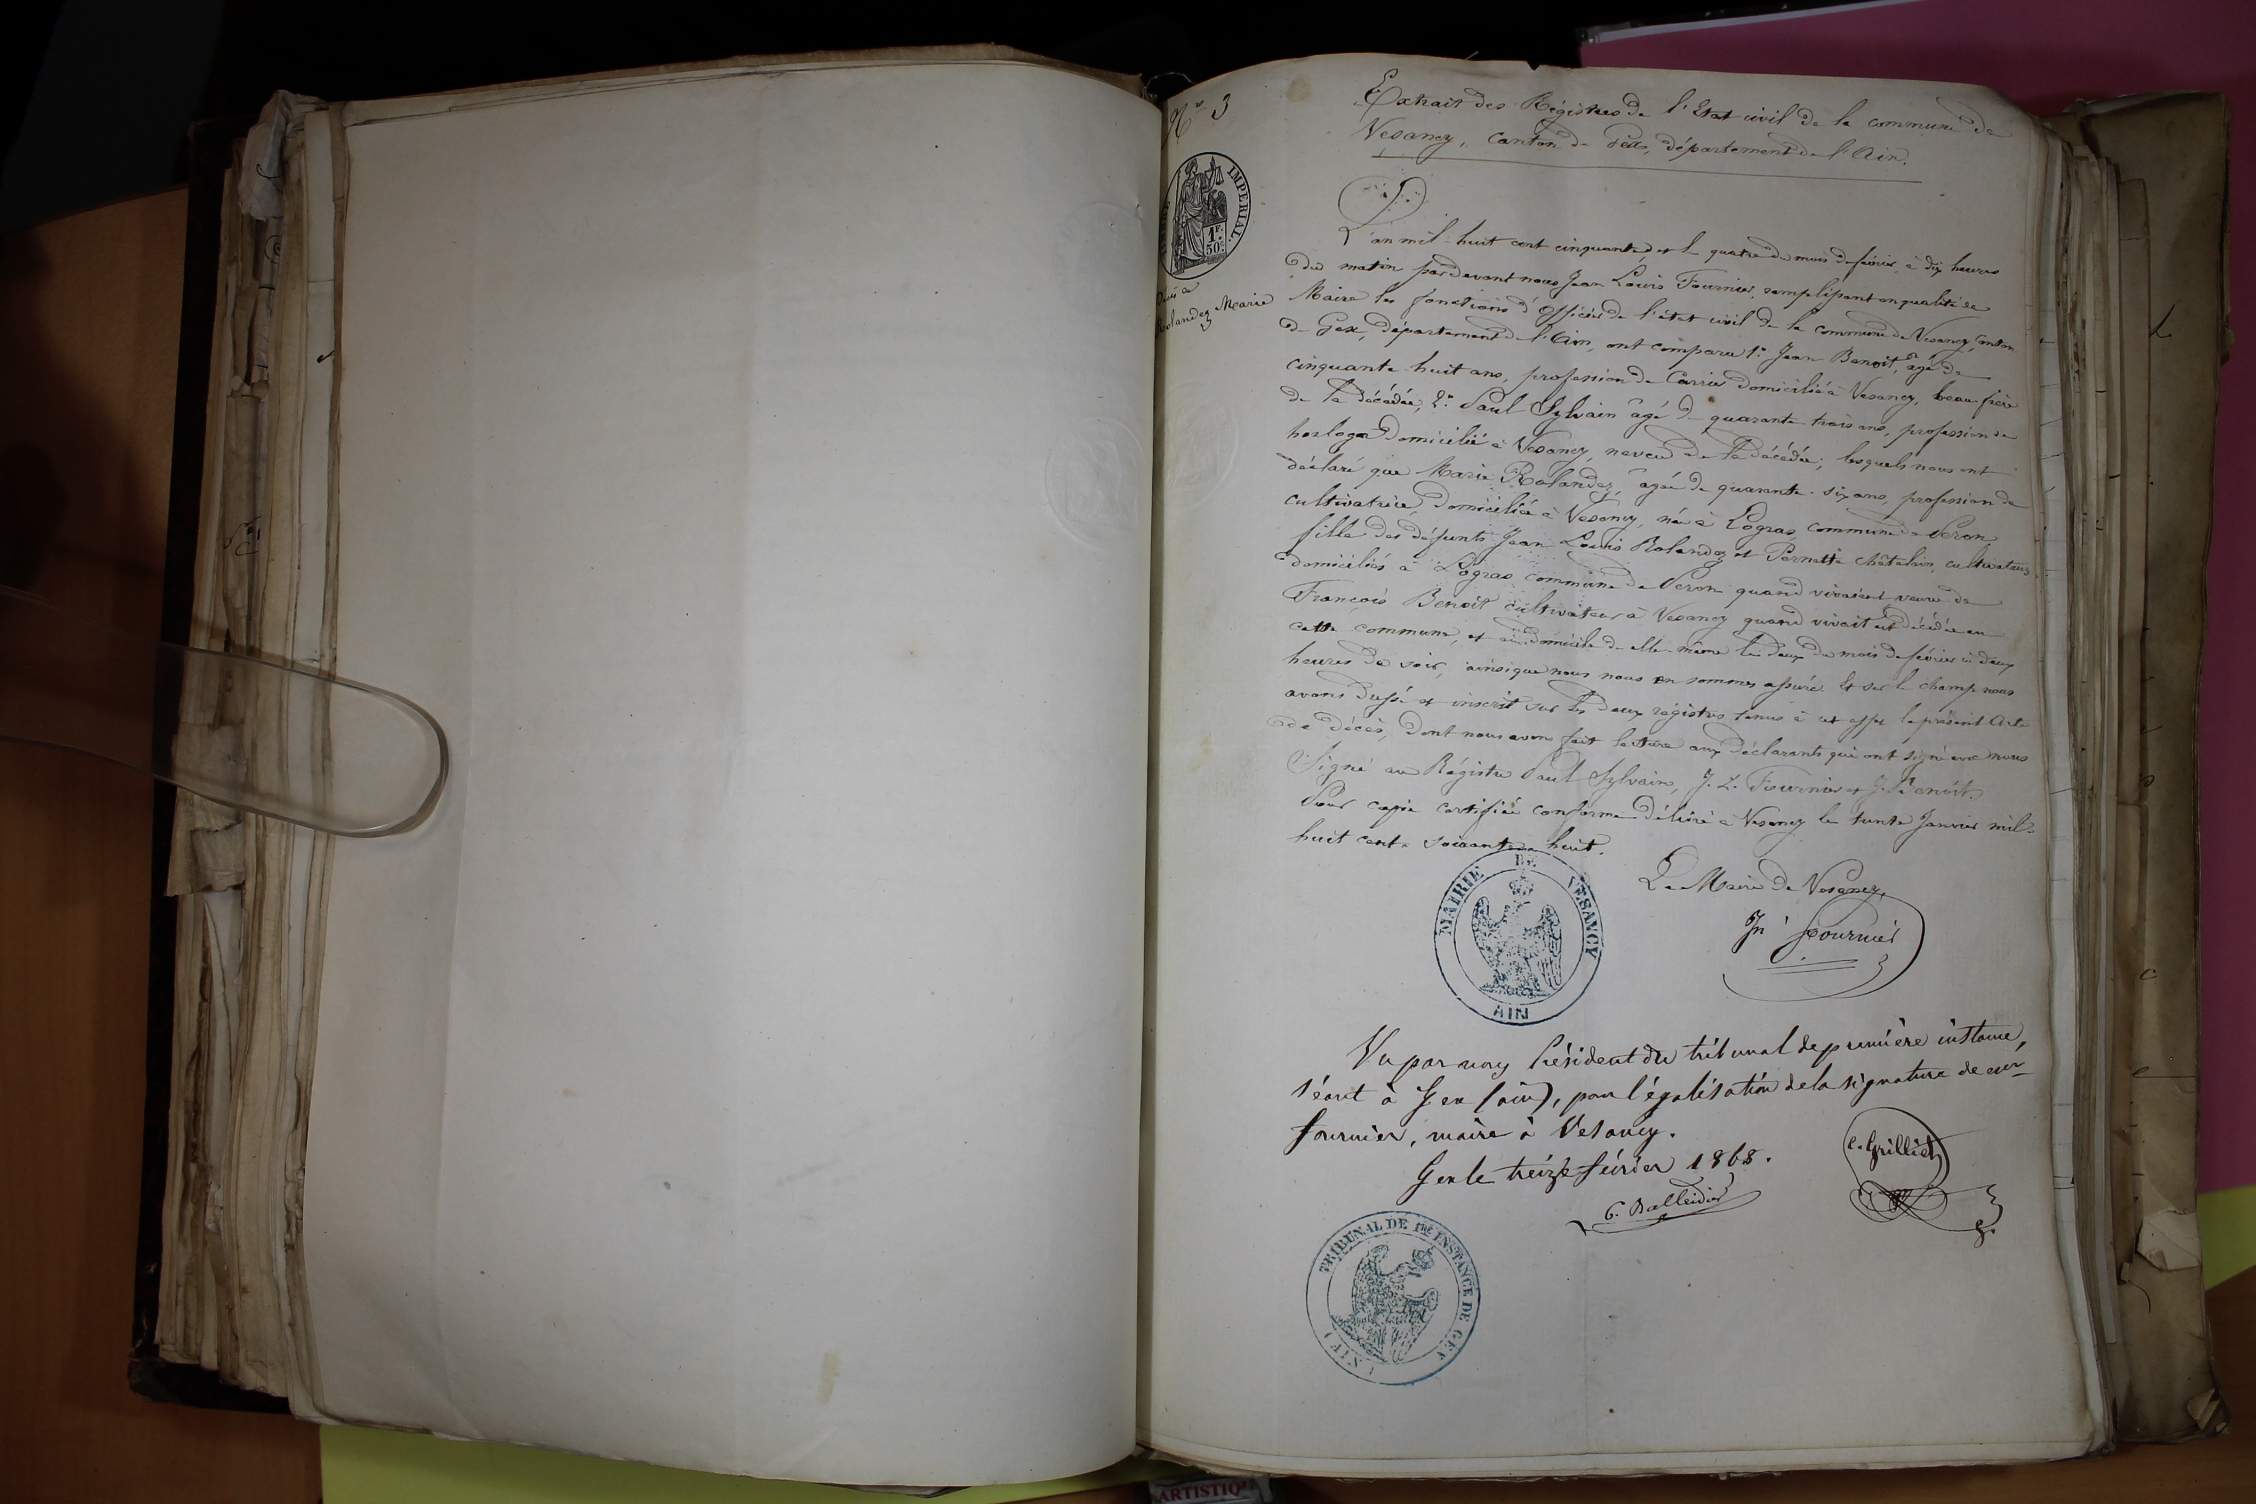 N° 3
TIMBRE IMPERIAL
1F.
50C.
Décès de
Rolandez Marie
Extrait des Régistres de l'Etat civil de la commune de
Vesancy, canton de Gex, département de l'Ain.
L'an mil huit cent cinquante, et le quatre du mois de février, à dix heures
du matin pardevant nous Jean Louis Fournier, remplissant en qualité de
Maire les fonctions d'Officier de l'état civil de la commune de Vesancy, canton
de Gex, département de l'Ain, ont comparu 1° Jean Benoit, âgé de
cinquante-huit ans, profession de Carrier domicilié à Vesancy, beau frère
de la décédée, 2° Paul Sylvain âgé de quarante trois ans, profession de
horloger domicilié à Vesancy, neveu de la décédée, lesquels nous ont
déclaré que Marie Rolandez, âgée de quarante-six ans, profession de
cultivatrice, domiciliée à Vesancy, née à Logras commune de Péron
fille des défunts Jean Louis Rolandez et Pernette Châtelain, cultivateurs
domiciliés à Logras commune de Péron quand vivaient veuve de
François Benoit cultivateur à Vesancy quand vivait est décédée en
cette commune, et au domicile de elle-même le deux du mois de février à deux
heures du soir, ainsi que nous nous en sommes assuré. Et sur le champ nous
avons dressé et inscrit sur les deux régistres tenus à cet effet le présent Acte
de décès, dont nous avons fait lecture aux déclarants qui ont signé avec nous
Signé au Régistre Paul Sylvain, J. L. Fournier et J. Benoit.
Pour copie certifiée conforme délivré à Vesancy le trente Janvier mil-
huit cent soixante huit.
Le Maire de Vesancy,
Fournier
MAIRIE DE VESANCY
AIN
Vu par nous Président du tribunal de première instance,
séant à Gex (ain), pour légalisation de la signature de
fournier, maire à Vesancy.
Gex le treize février 1868.
C. Grilliet
G. Balleidier
TRIBUNAL DE 1RE INSTANCE DE GEX
(AIN)
ARTISTIQ